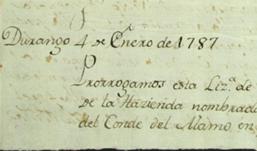 Durango 4 de Enero de 1787
Prorrogamos esta Liz.ª de
de la Hazienda nombrad
del Conde del Alamo en